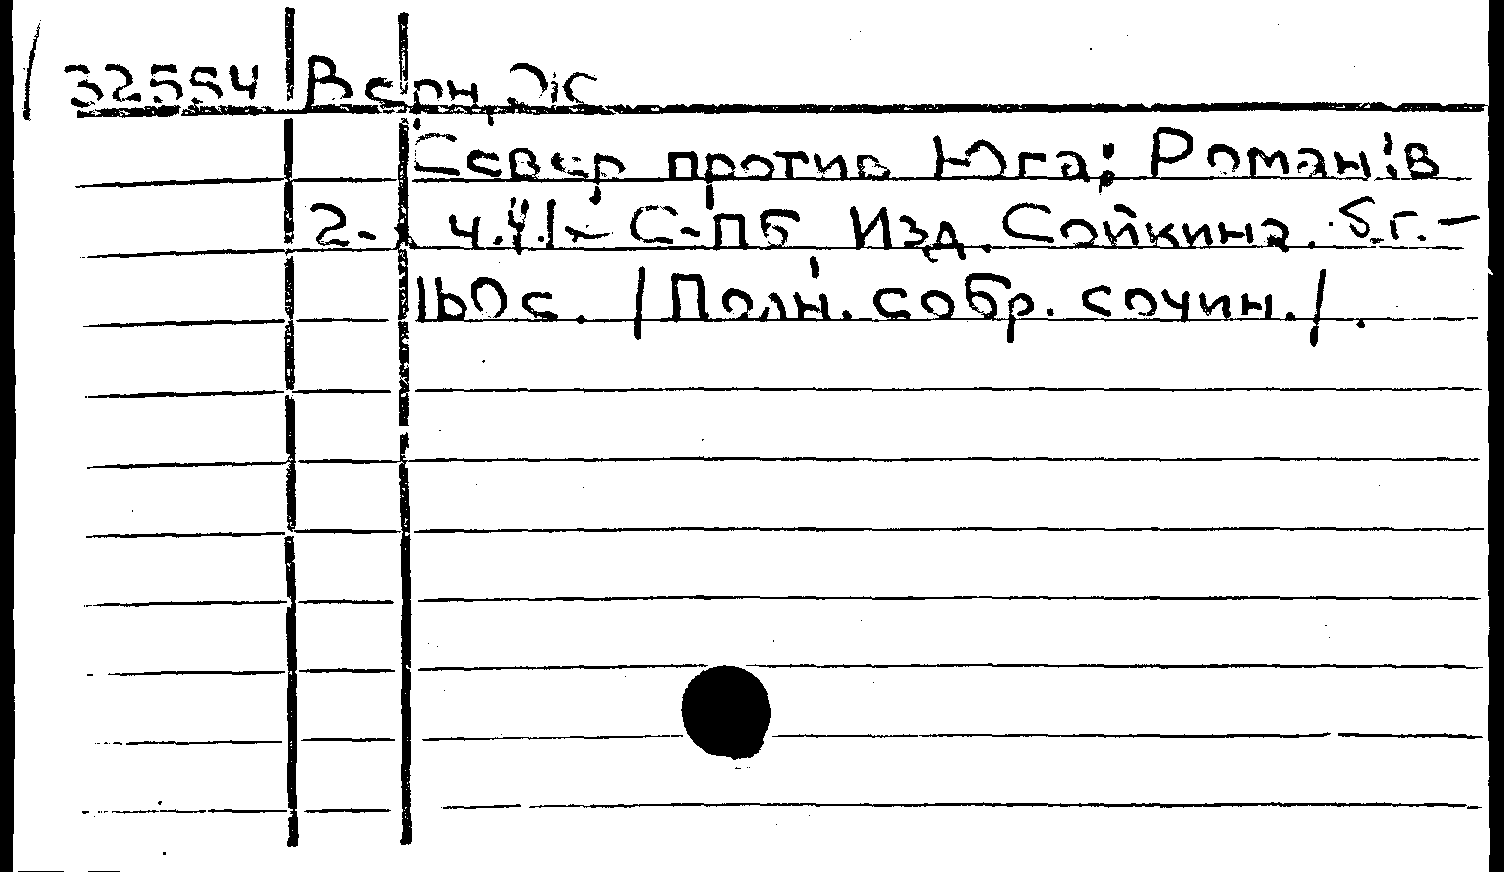 32554 Верн, Ж
Север против Юга: Роман: в
2-х ч. Ч.1.- С-Пб, Изд. Сойкина. б.г. -
160 с. /Полн. собр. сочин./.